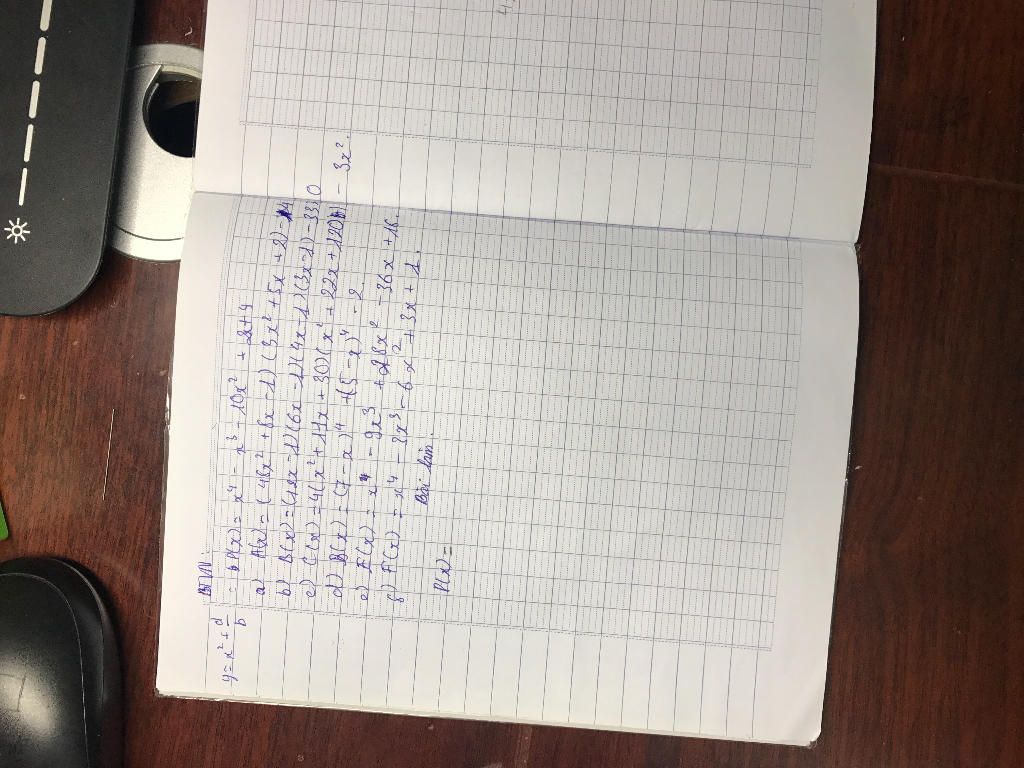 BTVN:
y = x² + d/b
= P(x) = x⁴ - x³ - 10x² + 2x + 4
a) A(x) = (4x² + 6x - 1)(3x² + 5x + 2) - 4
b) B(x) = (12x - 1)(6x - 1)(4x - 1)(3x - 1) - 330
c) C(x) = 4(x² + 17x + 30)(x² + 22x + 120) - 3x².
d) D(x) = (7 - x)⁴ + (5 - x)⁴ - 2
e) E(x) = x⁴ - 9x³ + 28x² - 36x + 16.
f) F(x) = x⁴ - 3x³ - 6x² + 3x + 1.
Bài làm
P(x) =